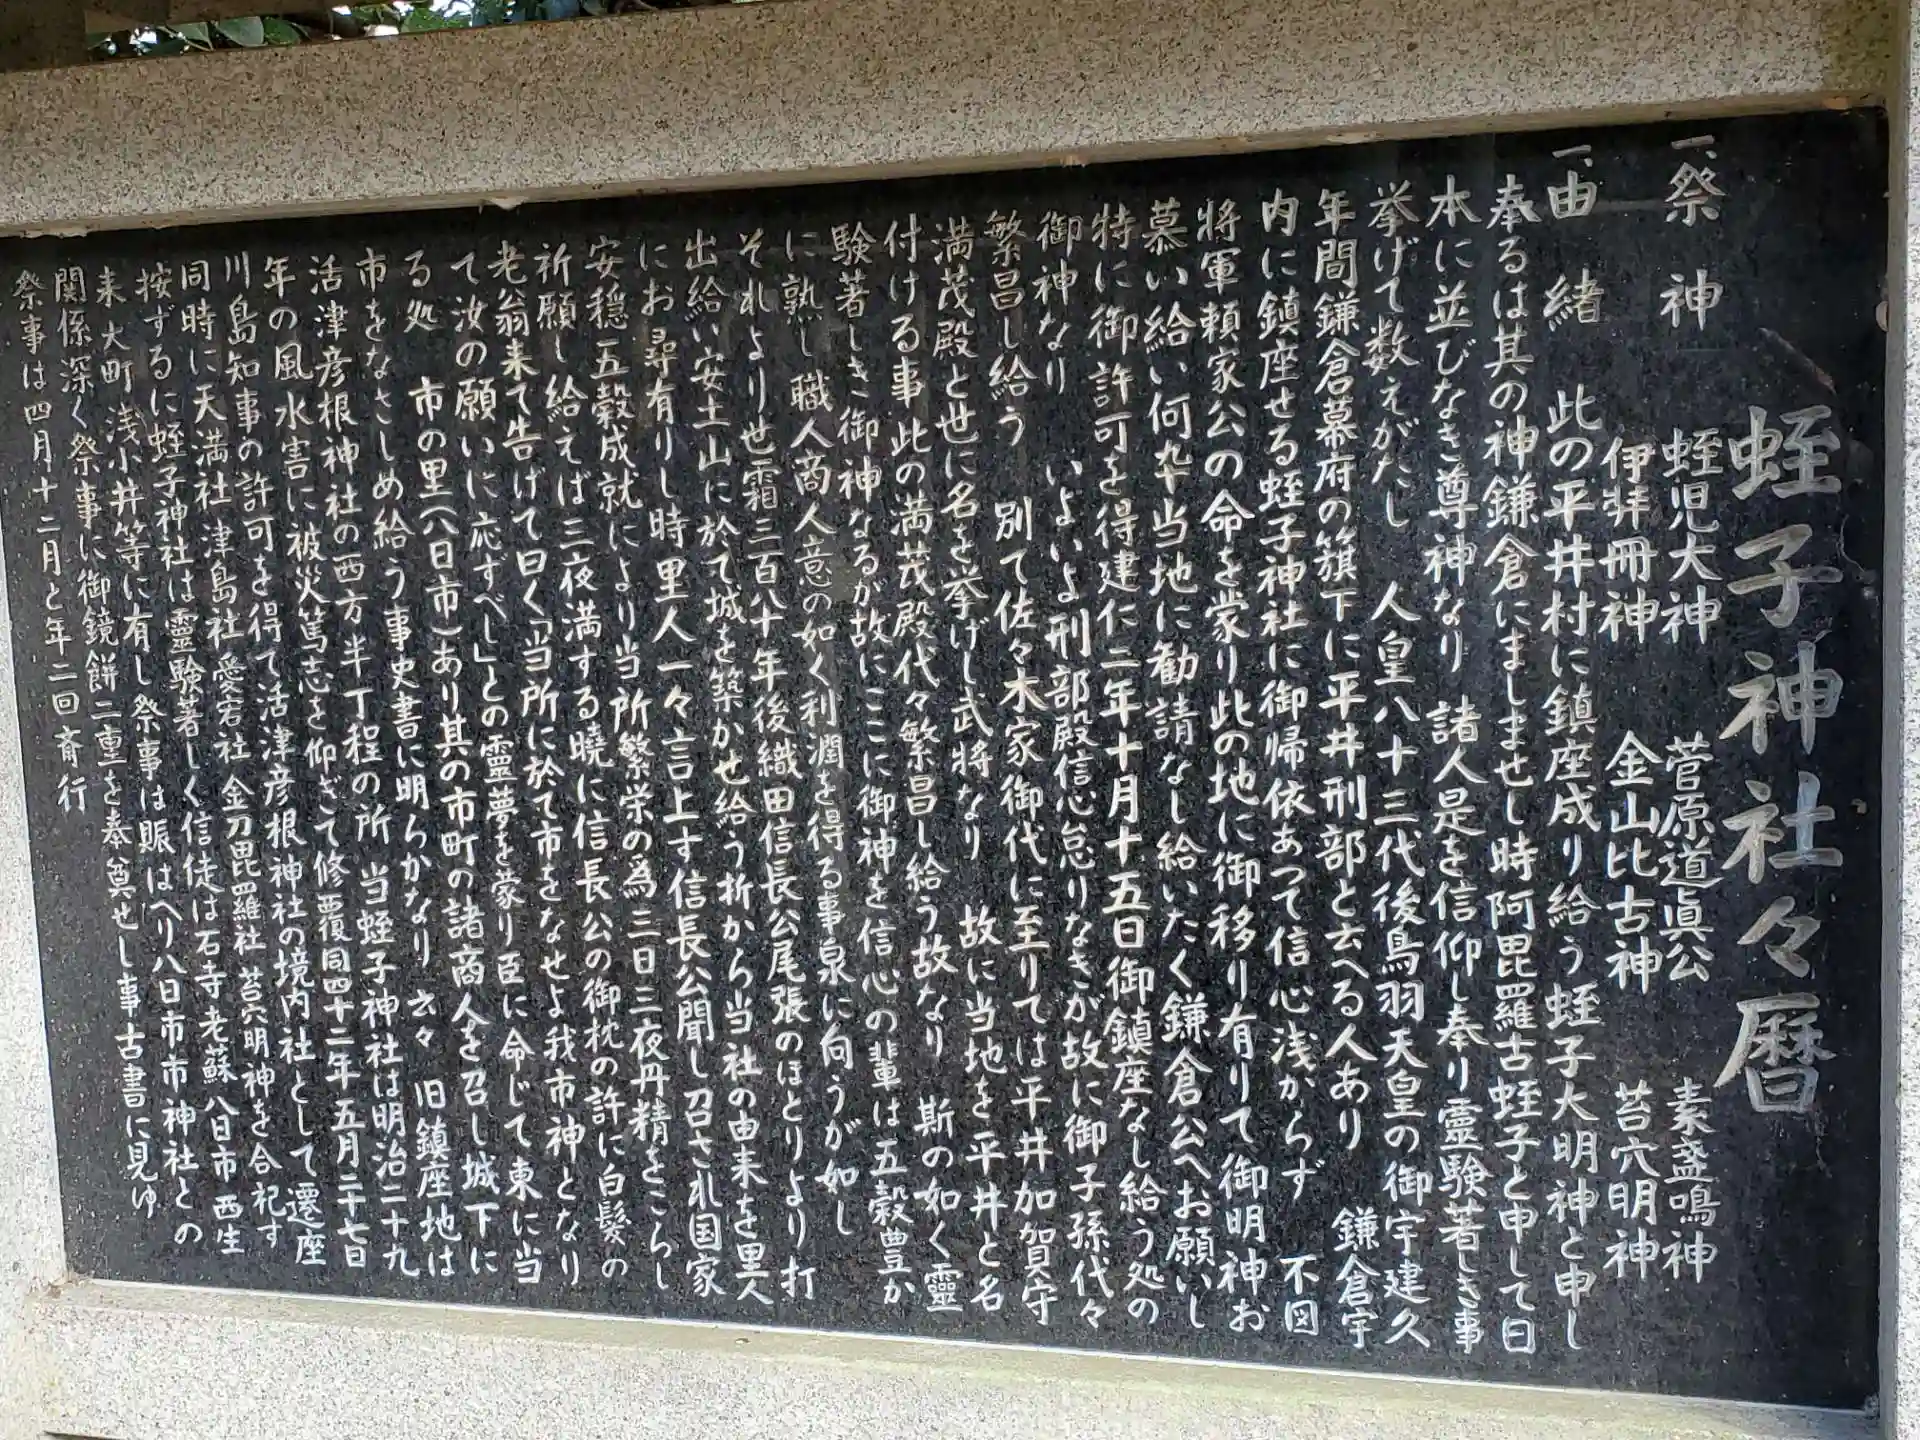 蛭子神社々暦
一、祭神 蛭児大神 菅原道眞公 素盞鳴神
伊弉冊神 金山比古神 苔穴明神
一、由緒 此の平井村に鎮座成り給う蛭子大明神と申し
奉るは其の神鎌倉にましませし時阿毘羅古蛭子と申して日
本に並びなき尊神なり 諸人是を信仰し奉り霊験著しき事
挙げて数えがたし 人皇八十三代後鳥羽天皇の御宇建久
年間鎌倉幕府の籏下に平井刑部と云へる人あり 鎌倉宇
内に鎮座せる蛭子神社に御帰依あつて信心浅からず 不図
将軍頼家公の命を蒙り此の地に御移り有りて御明神お
慕い給い何卆当地に勧請なし給いたく鎌倉公へお願いし
特に御許可を得建仁二年十月十五日御鎮座なし給う処の
御神なり いよいよ刑部殿信心怠りなきが故に御子孫代々
繁昌し給う 別て佐々木家御代に至りては平井加賀守
満茂殿と世に名を挙げし武将なり 故に当地を平井と名
付ける事此の満茂殿代々繁昌し給う故なり 斯の如く靈
験著しき御神なるが故にここに御神を信心の輩は五穀豊か
に熟し職人商人意の如く利潤を得る事泉に向うが如し
それより也霜三百八十年後織田信長公尾張のほとりより打
出給い安土山に於て城を築かせ給う折から当社の由来を里人
にお尋有りし時里人一々言上す信長公聞し召され国家
安穏五穀成就により当所繁栄の爲三日三夜丹精をこらし
祈願し給えば三夜満する曉に信長公の御枕の許に白髪の
老翁来て告げて曰く「当所に於て市をなせよ我市神となり
て汝の願いに応ずべし」との靈夢を蒙り臣に命じて東に当
る処 市の里(八日市)あり其の市町の諸商人を召し城下に
市をなさしめ給う事史書に明らかなり 云々 旧鎮座地は
活津彦根神社の西方半丁程の所 当蛭子神社は明治二十九
年の風水害に被災篤志を仰ぎて修覆同四十二年五月二十七日
川島知事の許可を得て活津彦根神社の境内社として遷座
同時に天満社津島社愛宕社金刀毘羅社苔穴明神を合祀す
按ずるに蛭子神社は靈験著しく信徒は石寺老蘇八日市西生
来大町浅小井等に有し祭事は賑はへり八日市市神社との
関係深く祭事に御鏡餅二重を奉奠せし事古書に見ゆ
祭事は四月十二月と年二回斎行